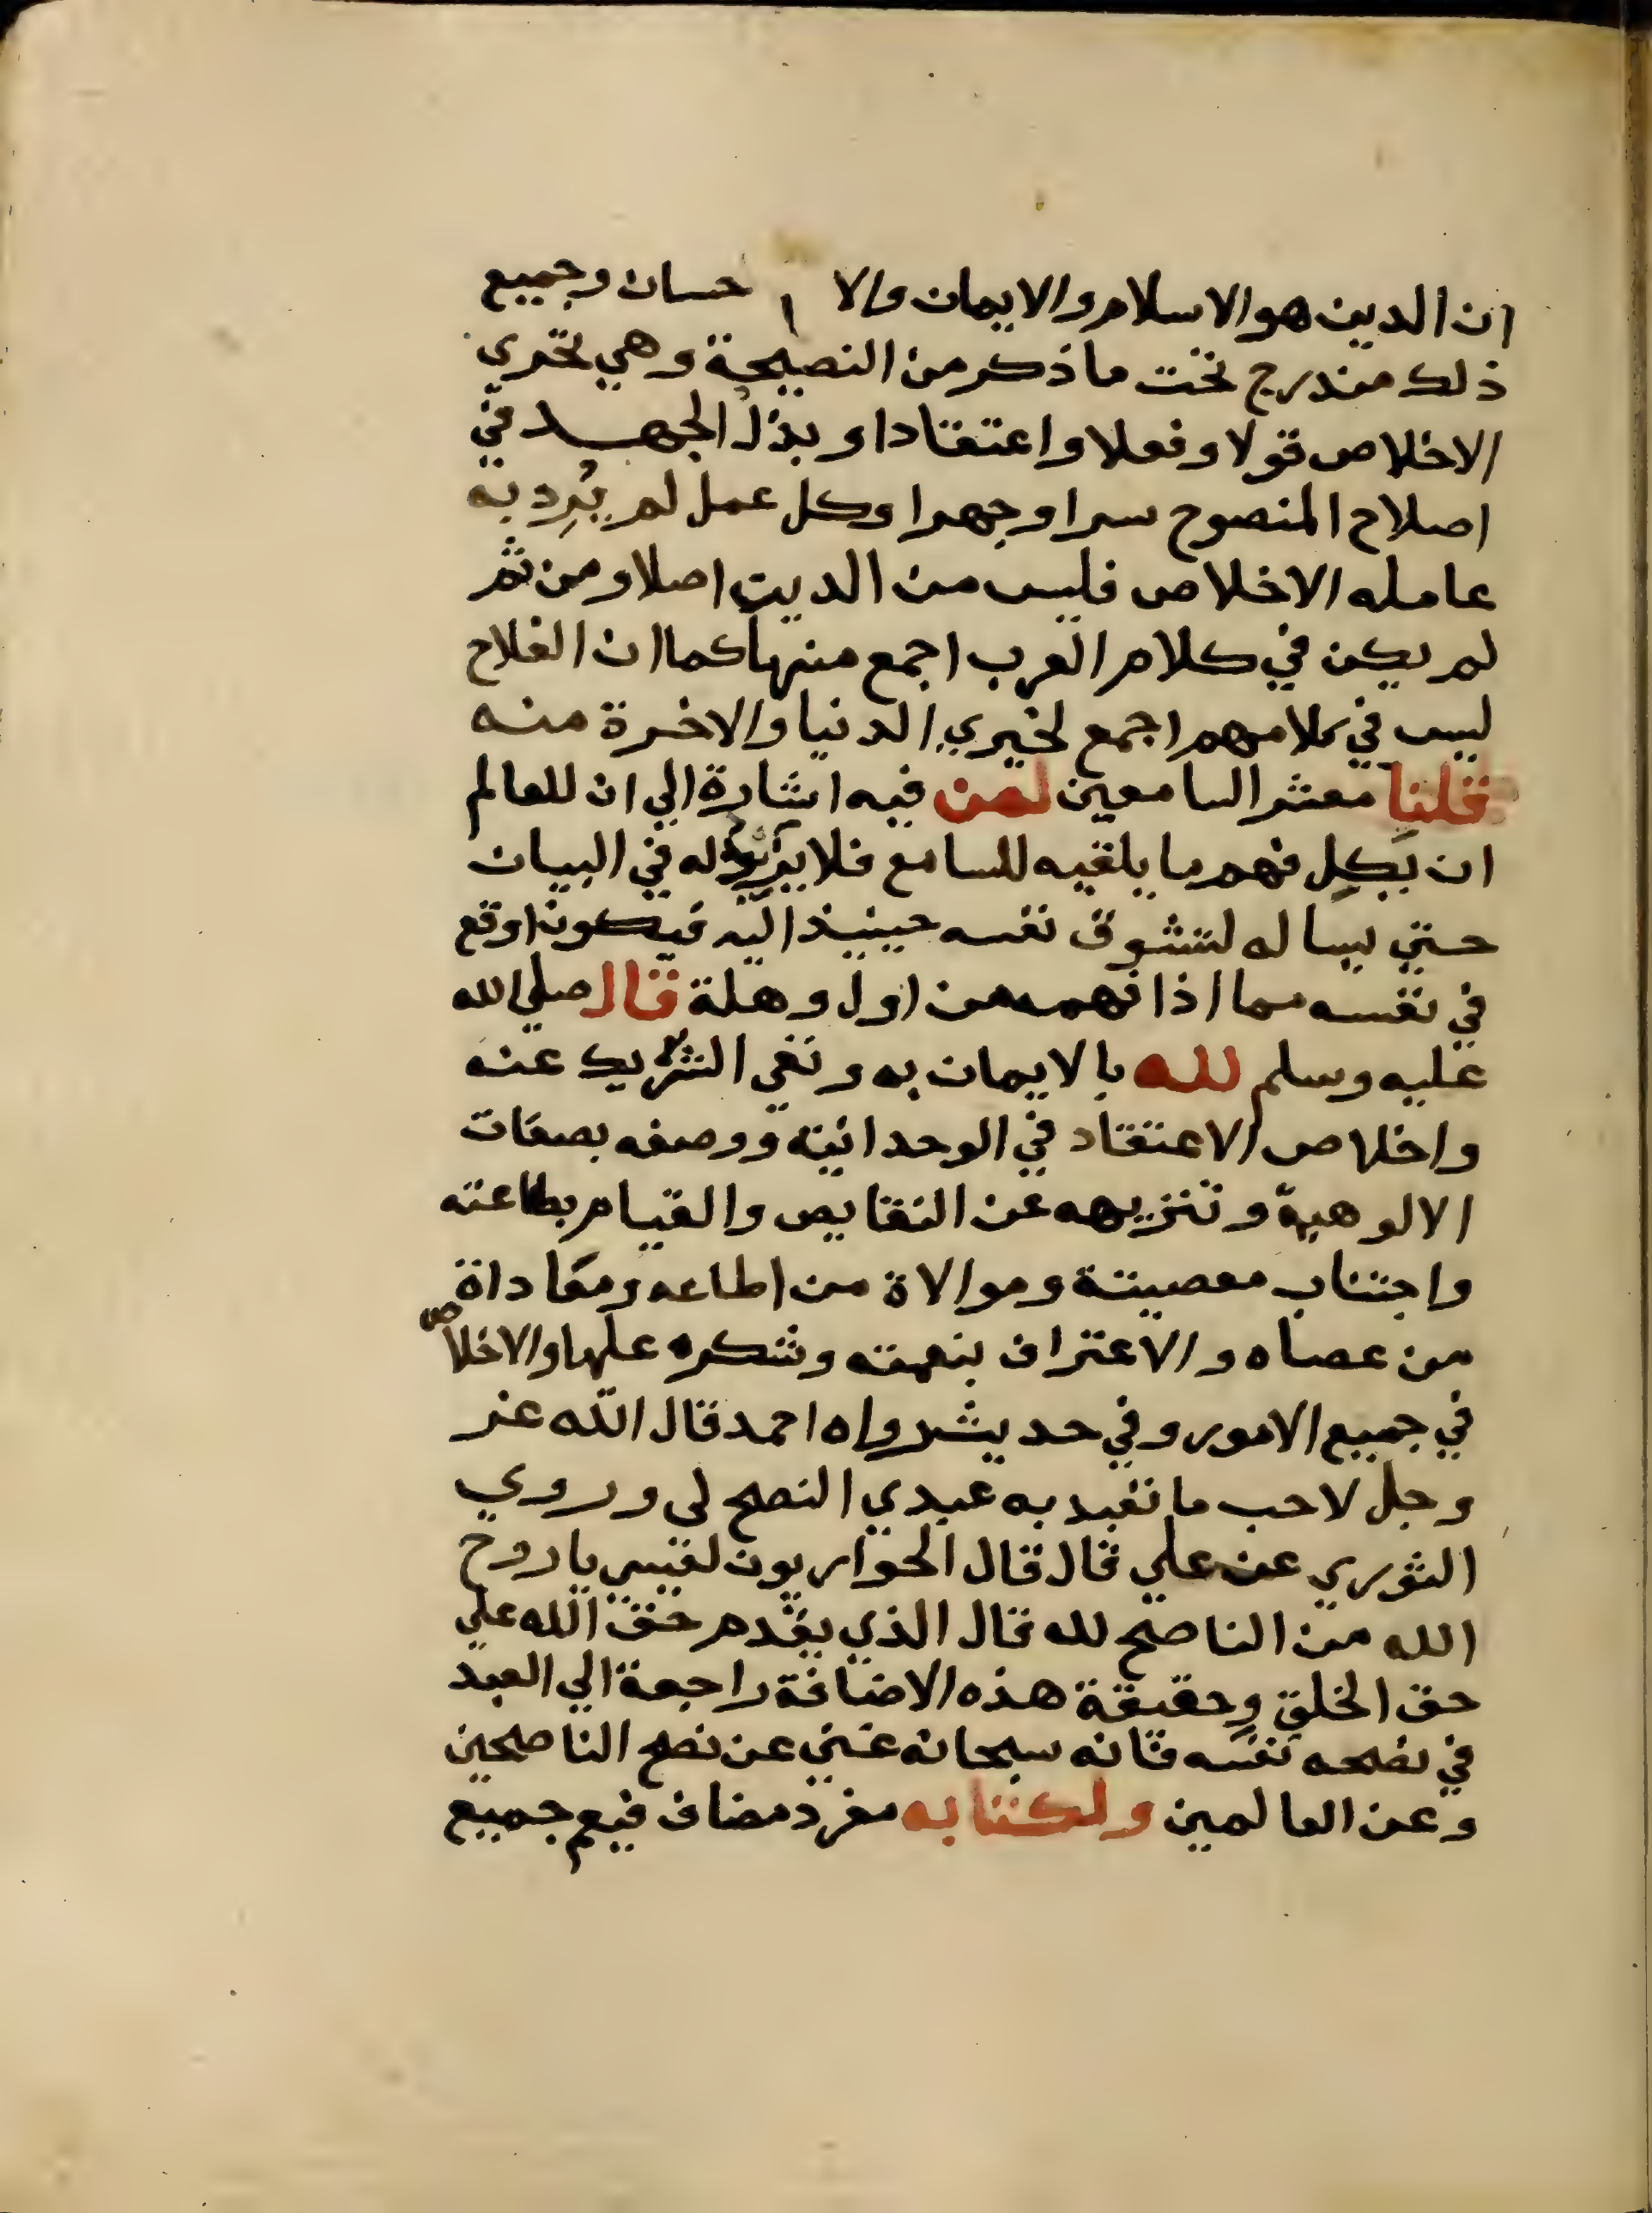 ان الدين هو الاسلام والايمان والا حسان وجميع
ذلك مندرج تحت ما ذكر من النصيحة وهي تحري
الاخلاص قولا وفعلا واعتقادا وبذل الجهد في
اصلاح المنصوح سرا وجهرا وكل عمل لم يُرِد به
عامله الاخلاص فليس من الدين اصلا ومن ثم
لم يكن في كلام العرب اجمع منها كما ان الفلاح
ليس في كلامهم اجمع لخيري الدنيا والاخرة منه
قلنا معشر السامعين لمن فيه اشارة الي ان للعالم
ان يكل فهم ما يلقيه للسامع فلا يزيد له في البيان
حتي يساله لتتشوق نفسه حينيذ اليه فيكون اوقع
في نفسه مما اذا فهمه من اول وهلة قال صلي الله
عليه وسلم لله بالايمان به ونفي الشريك عنه
واخلاص الاعتقاد في الوحدانية ووصفه بصفات
الالوهية وتنزيهه عن النقايص والقيام بطاعته
واجتناب معصيتة وموالاة من اطاعه ومعاداة
من عصاه والاعتراف بنعمته وشكره عليها والاخلاص
في جميع الامور وفي حديث رواه احمد قال الله عز
وجل لاحب ما تعبد به عبدي النصح لي وروي
الثوري عن علي قال قال الحواريون لعيسي يا روح
الله من الناصح لله قال الذي يقدم حق الله علي
حق الخلق وحقيقة هذه الاضافة راجعة الي العبد
في نصحه نفسه فانه سبحانه غني عن نصح الناصحين
وعن العالمين ولكتابه مفرد مضاف فيعم جميع